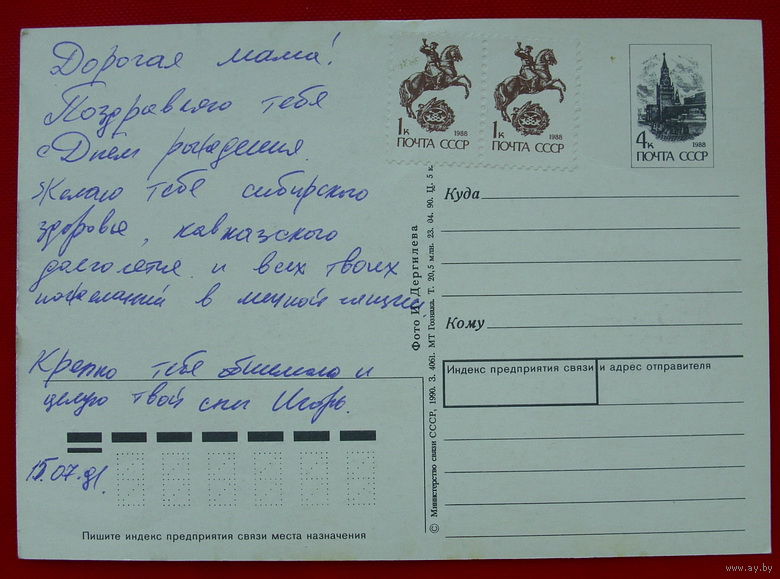 Дорогая мама!
Поздравляю тебя
с Днем рождения.
Желаю тебе сибирского
здоровья, кавказского
долголетия и всех твоих
пожеланий в личной жизни.
Крепко тебя обнимаю и
целую твой сын Игорь.
15.07.91.
Пишите индекс предприятия связи места назначения
1к 1988
ПОЧТА СССР
1к 1988
ПОЧТА СССР
4к 1988
ПОЧТА СССР
Фото И. Дергилева
© Министерство связи СССР, 1990. З. 4061. МТ Гознака. Т. 20,5 млн. 23. 04. 90. Ц. 5 к.
Куда
Кому
Индекс предприятия связи и адрес отправителя
www.ay.by